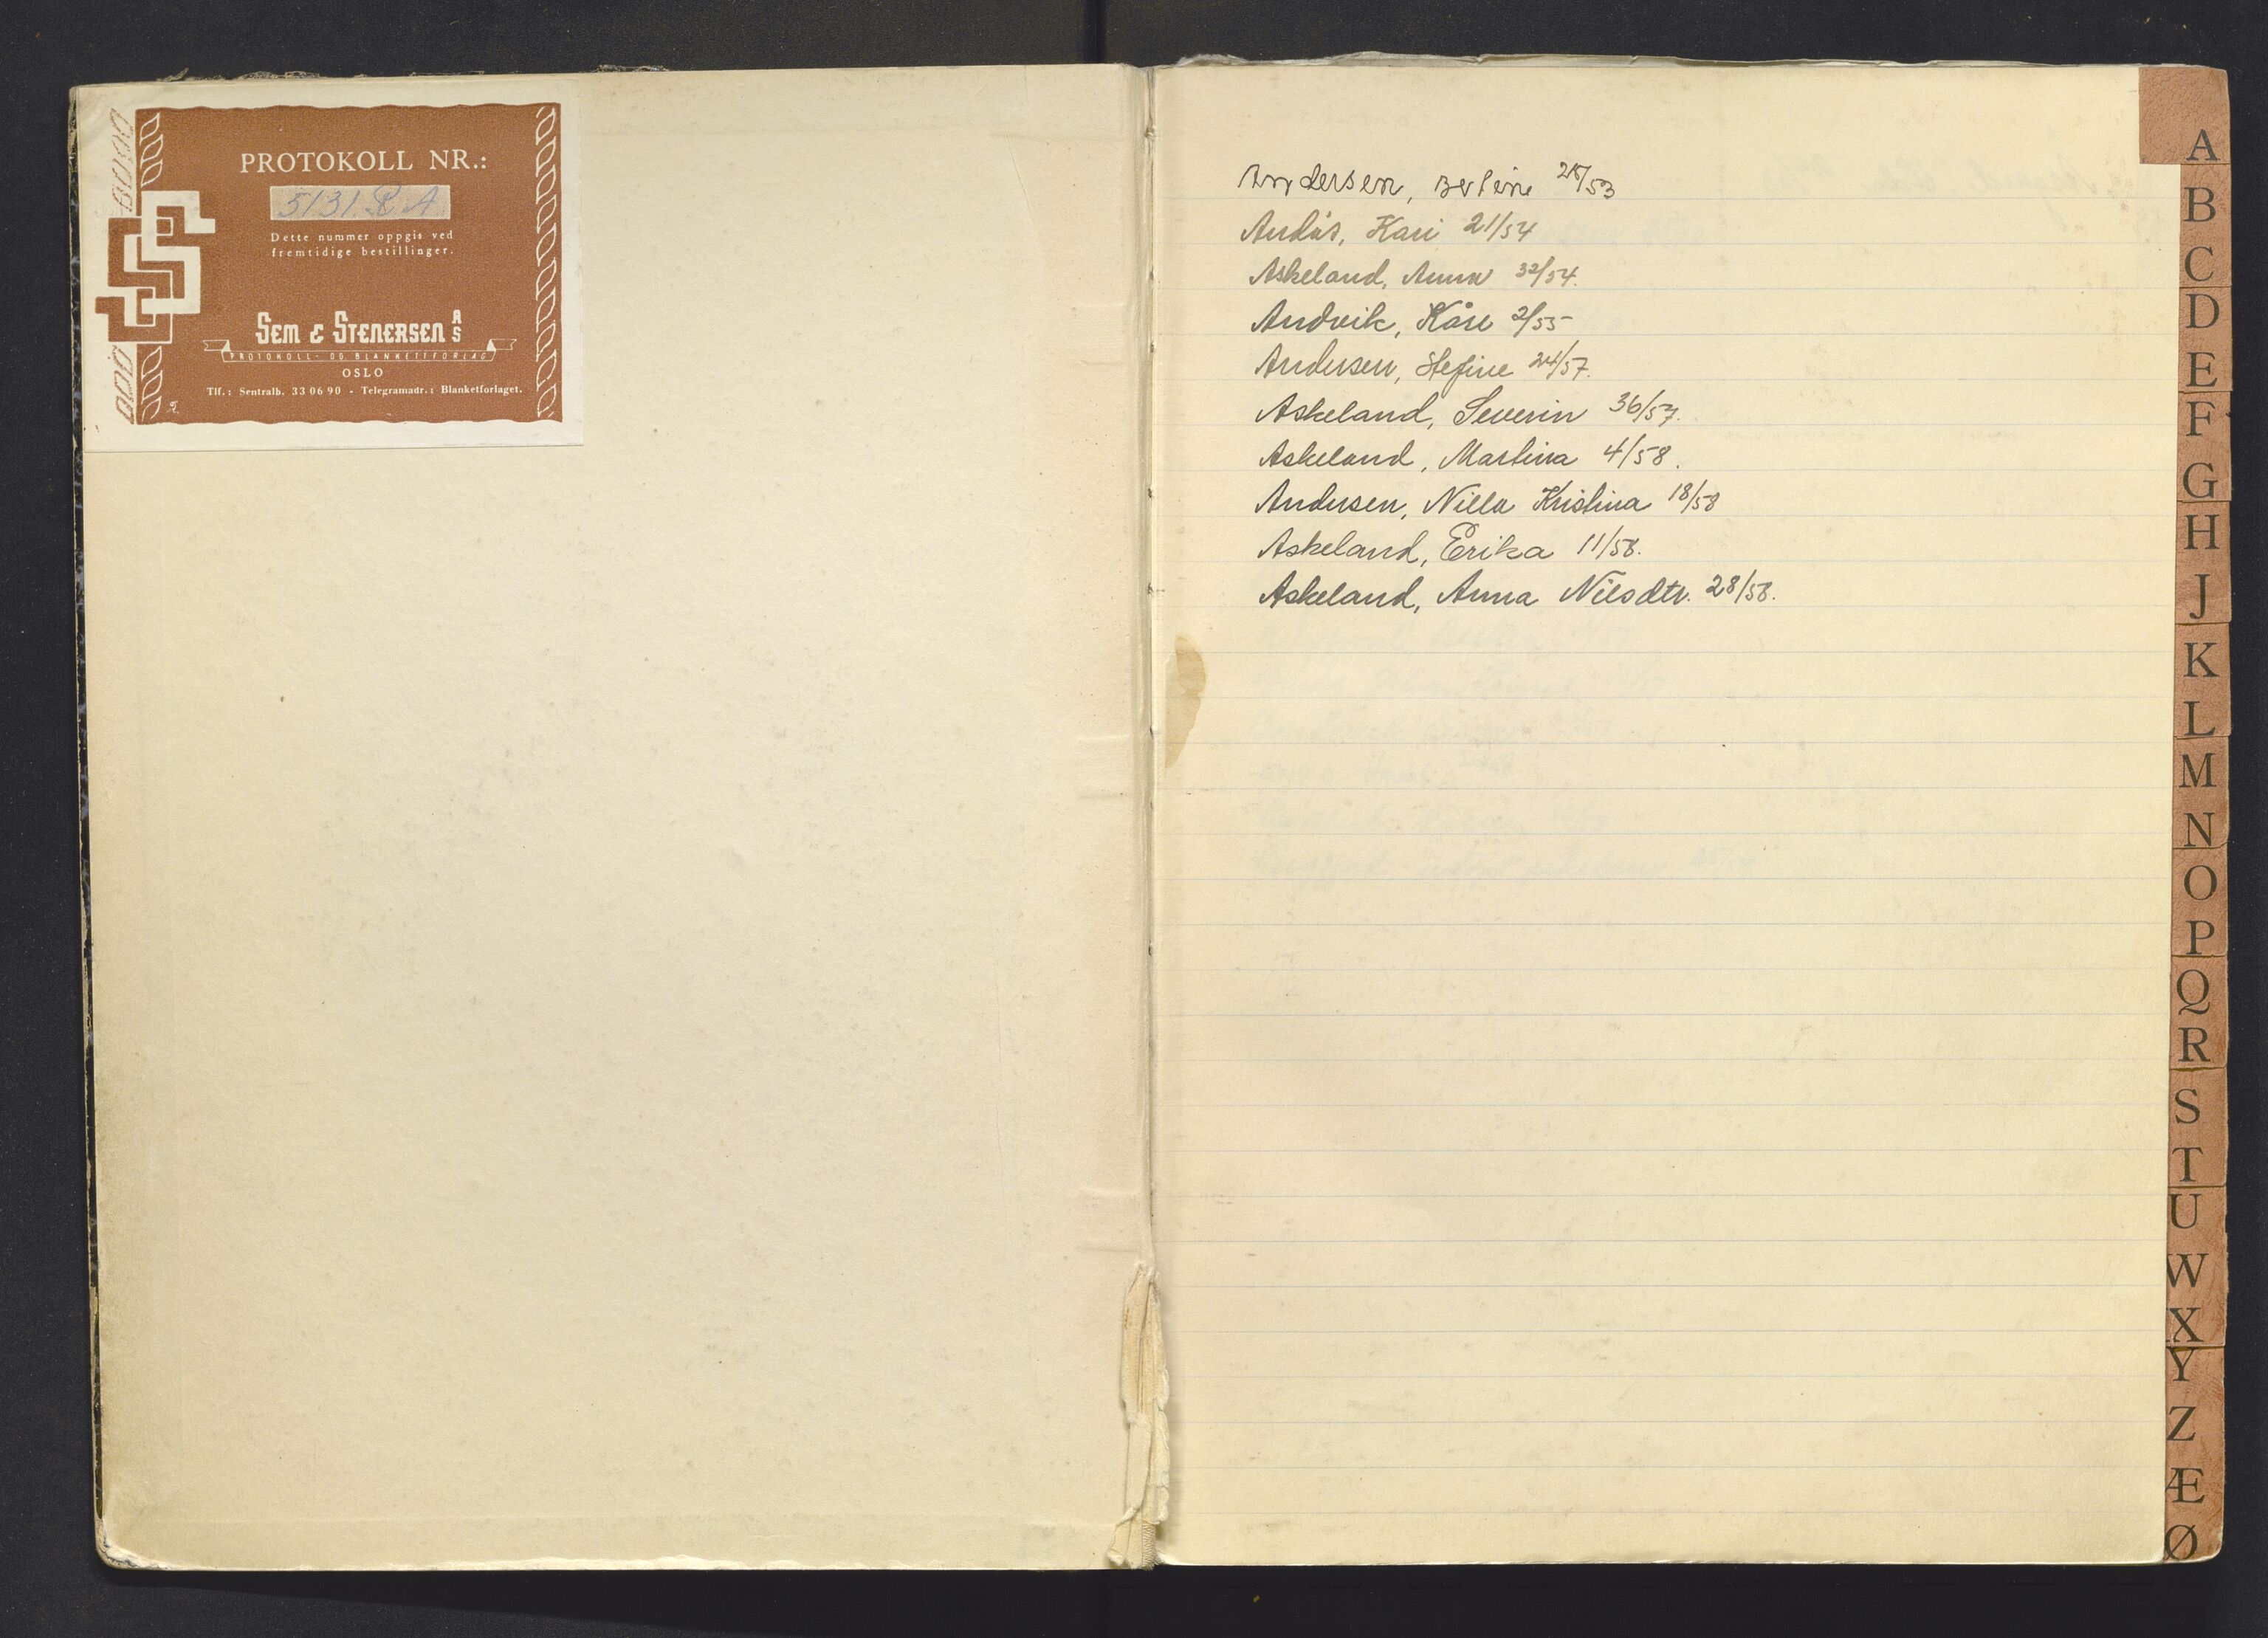 PROTOKOLL NR.:
5131 R A
Dette nummer oppgis ved
fremtidige bestillinger.
SEM & STENERSEN A/S
PROTOKOLL- OG BLANKETTFORLAG
OSLO
Tlf.: Sentralb. 33 06 90 - Telegramadr.: Blanketforlaget.
Andersen, Berline /53
Andås, Kari 21/54
Askeland, Anna 32/54.
Andvik, Kåre 2/55
Andersen, Stefine 24/57.
Askeland, Severin 36/57.
Askeland, Martina 4/58.
Andersen, Nilla Kristina 18/58
Askeland, Erika 11/58.
Askeland, Anna Nilsdtr. 28/58.
A
B
C
D
E
F
G
H
J
K
L
M
N
O
P
Q
R
S
T
U
W
X
Y
Z
Æ
Ø